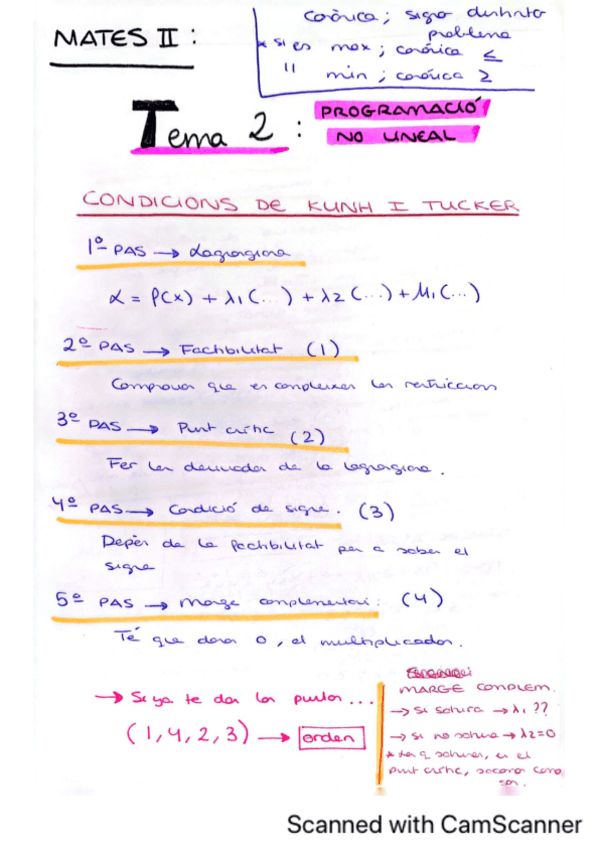 MATES II :
canónica; signo distinto
problema
* si es max; canónica ≤
" min; canónica ≥
Tema 2 :
PROGRAMACIÓ
NO LINEAL
CONDICIONS DE KUNH I TUCKER
1º PAS → Lagrangiana
α = P(x) + λ1(...) + λ2(...) + M1(...)
2º PAS → Factibilitat (1)
Comprovar que es compleixen les restriccions
3º PAS → Punt crític (2)
Fer les derivades de la lagrangiana.
4º PAS → Condició de signe. (3)
Depèn de la factibilitat per a saber el
signe
5º PAS → Marge complementari: (4)
Té que donar 0, el multiplicador.
→ Si ya te dan los puntos...
(1,4,2,3) → orden
MARGE COMPLEM.
→ si satura → λ1 ??
→ si no satura → λ2=0
punt crític,
Scanned with CamScanner